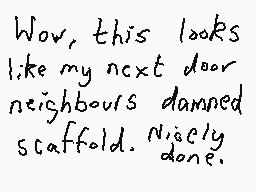 Wow, this looks
like my next door
neighbours damned
scaffold. Nicely
done.